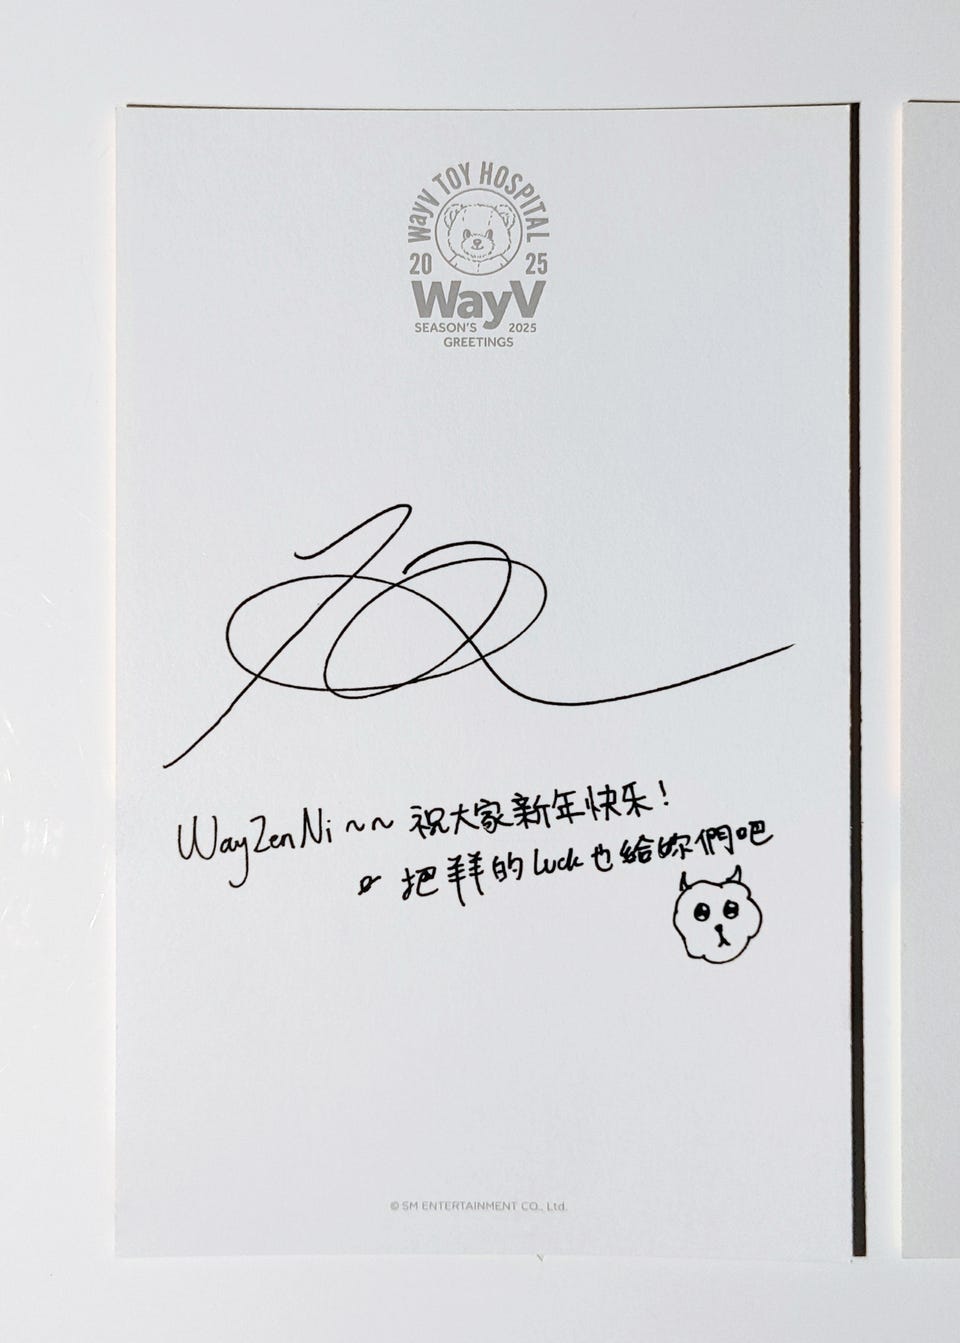 WayV TOY HOSPITAL
20 25
WayV
SEASON'S 2025
GREETINGS
WayZenNi ~~ 祝大家新年快乐!
把羊羊的luck也给妳們吧
© SM ENTERTAINMENT CO., Ltd.